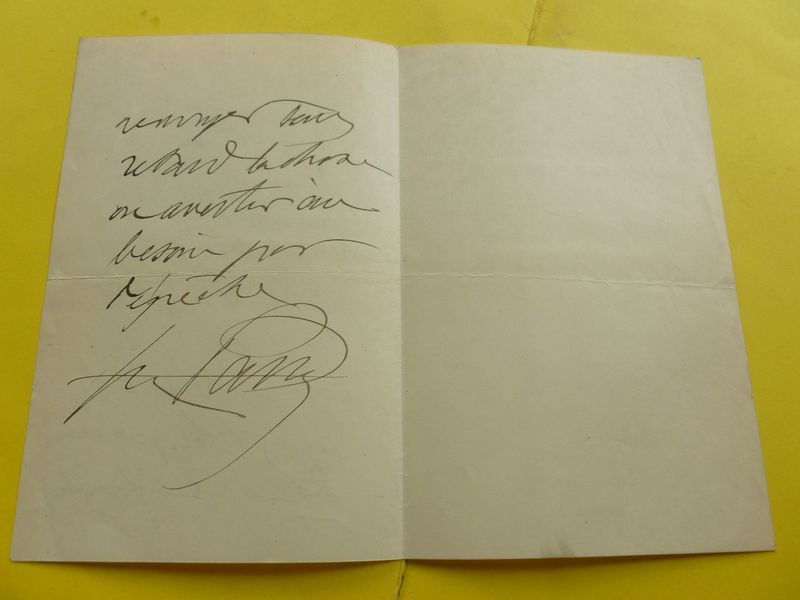 renvoyer sans
retard la chose
ou avertir au
besoin par
dépêche